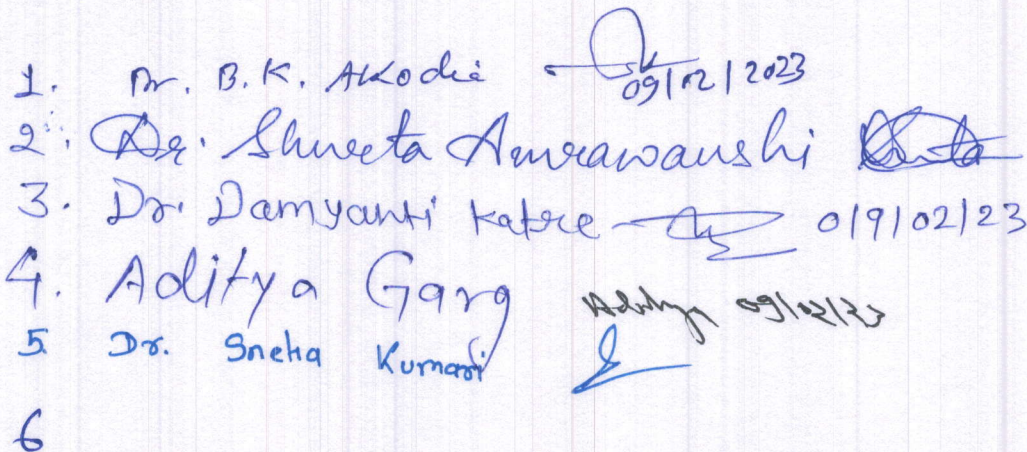 1. Dr. B.K. Akodia 09/02/2023
2. Dr. Shweta Amrawanshi
3. Dr. Damyanti Katre 0/9/02/23
4. Aditya Garg Aditya 09/02/23
5. Dr. Sneha Kumari
6